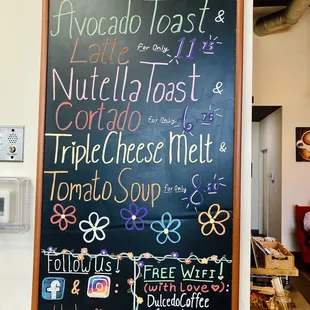 Avocado Toast &
Latte For Only 11.75
Nutella Toast &
Cortado For Only 6.75
Triple Cheese Melt &
Tomato Soup For Only 8.50
Follow Us!
&
Free WiFi!
(with Love):
DulcedoCoffee